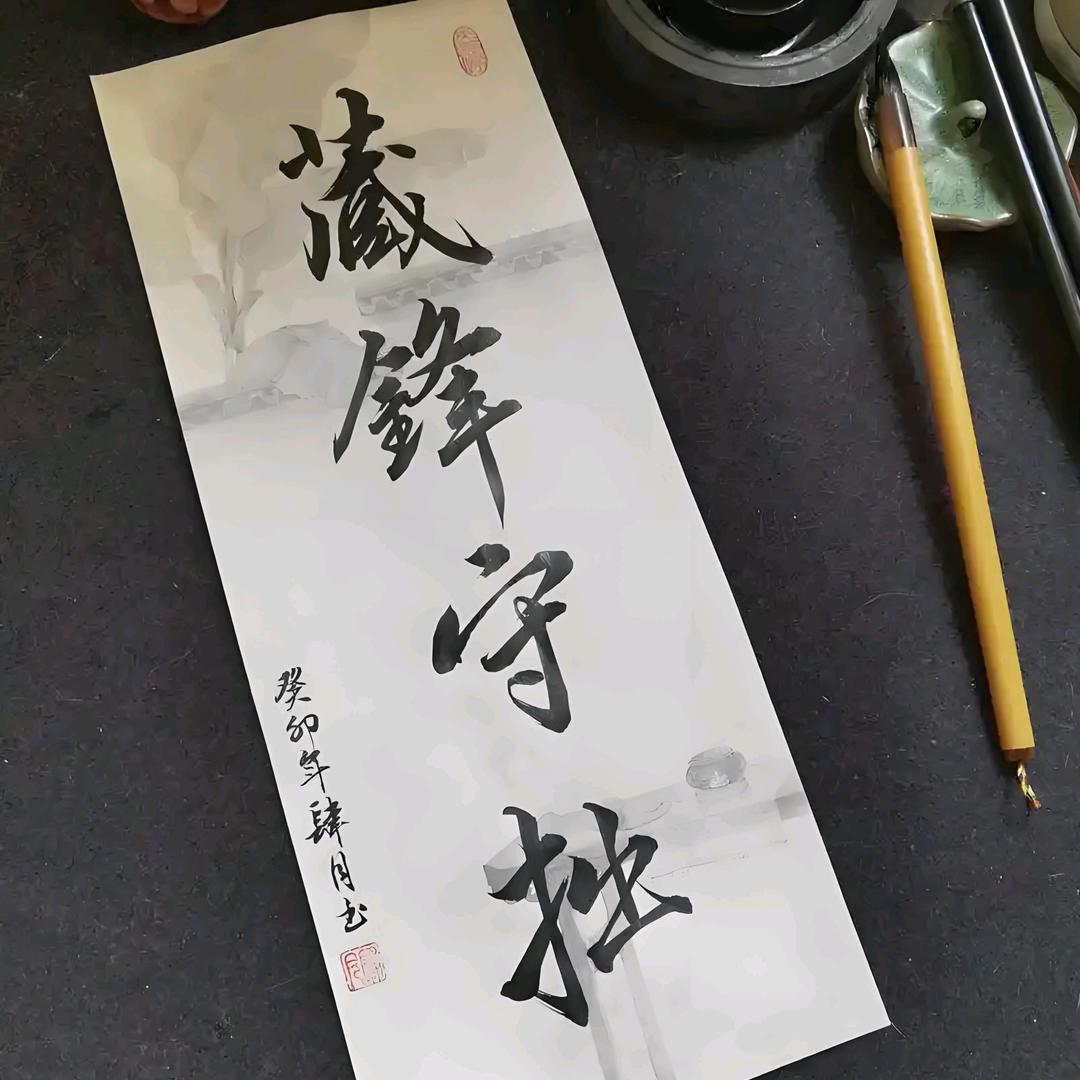 藏鋒守拙
癸卯年肆月书